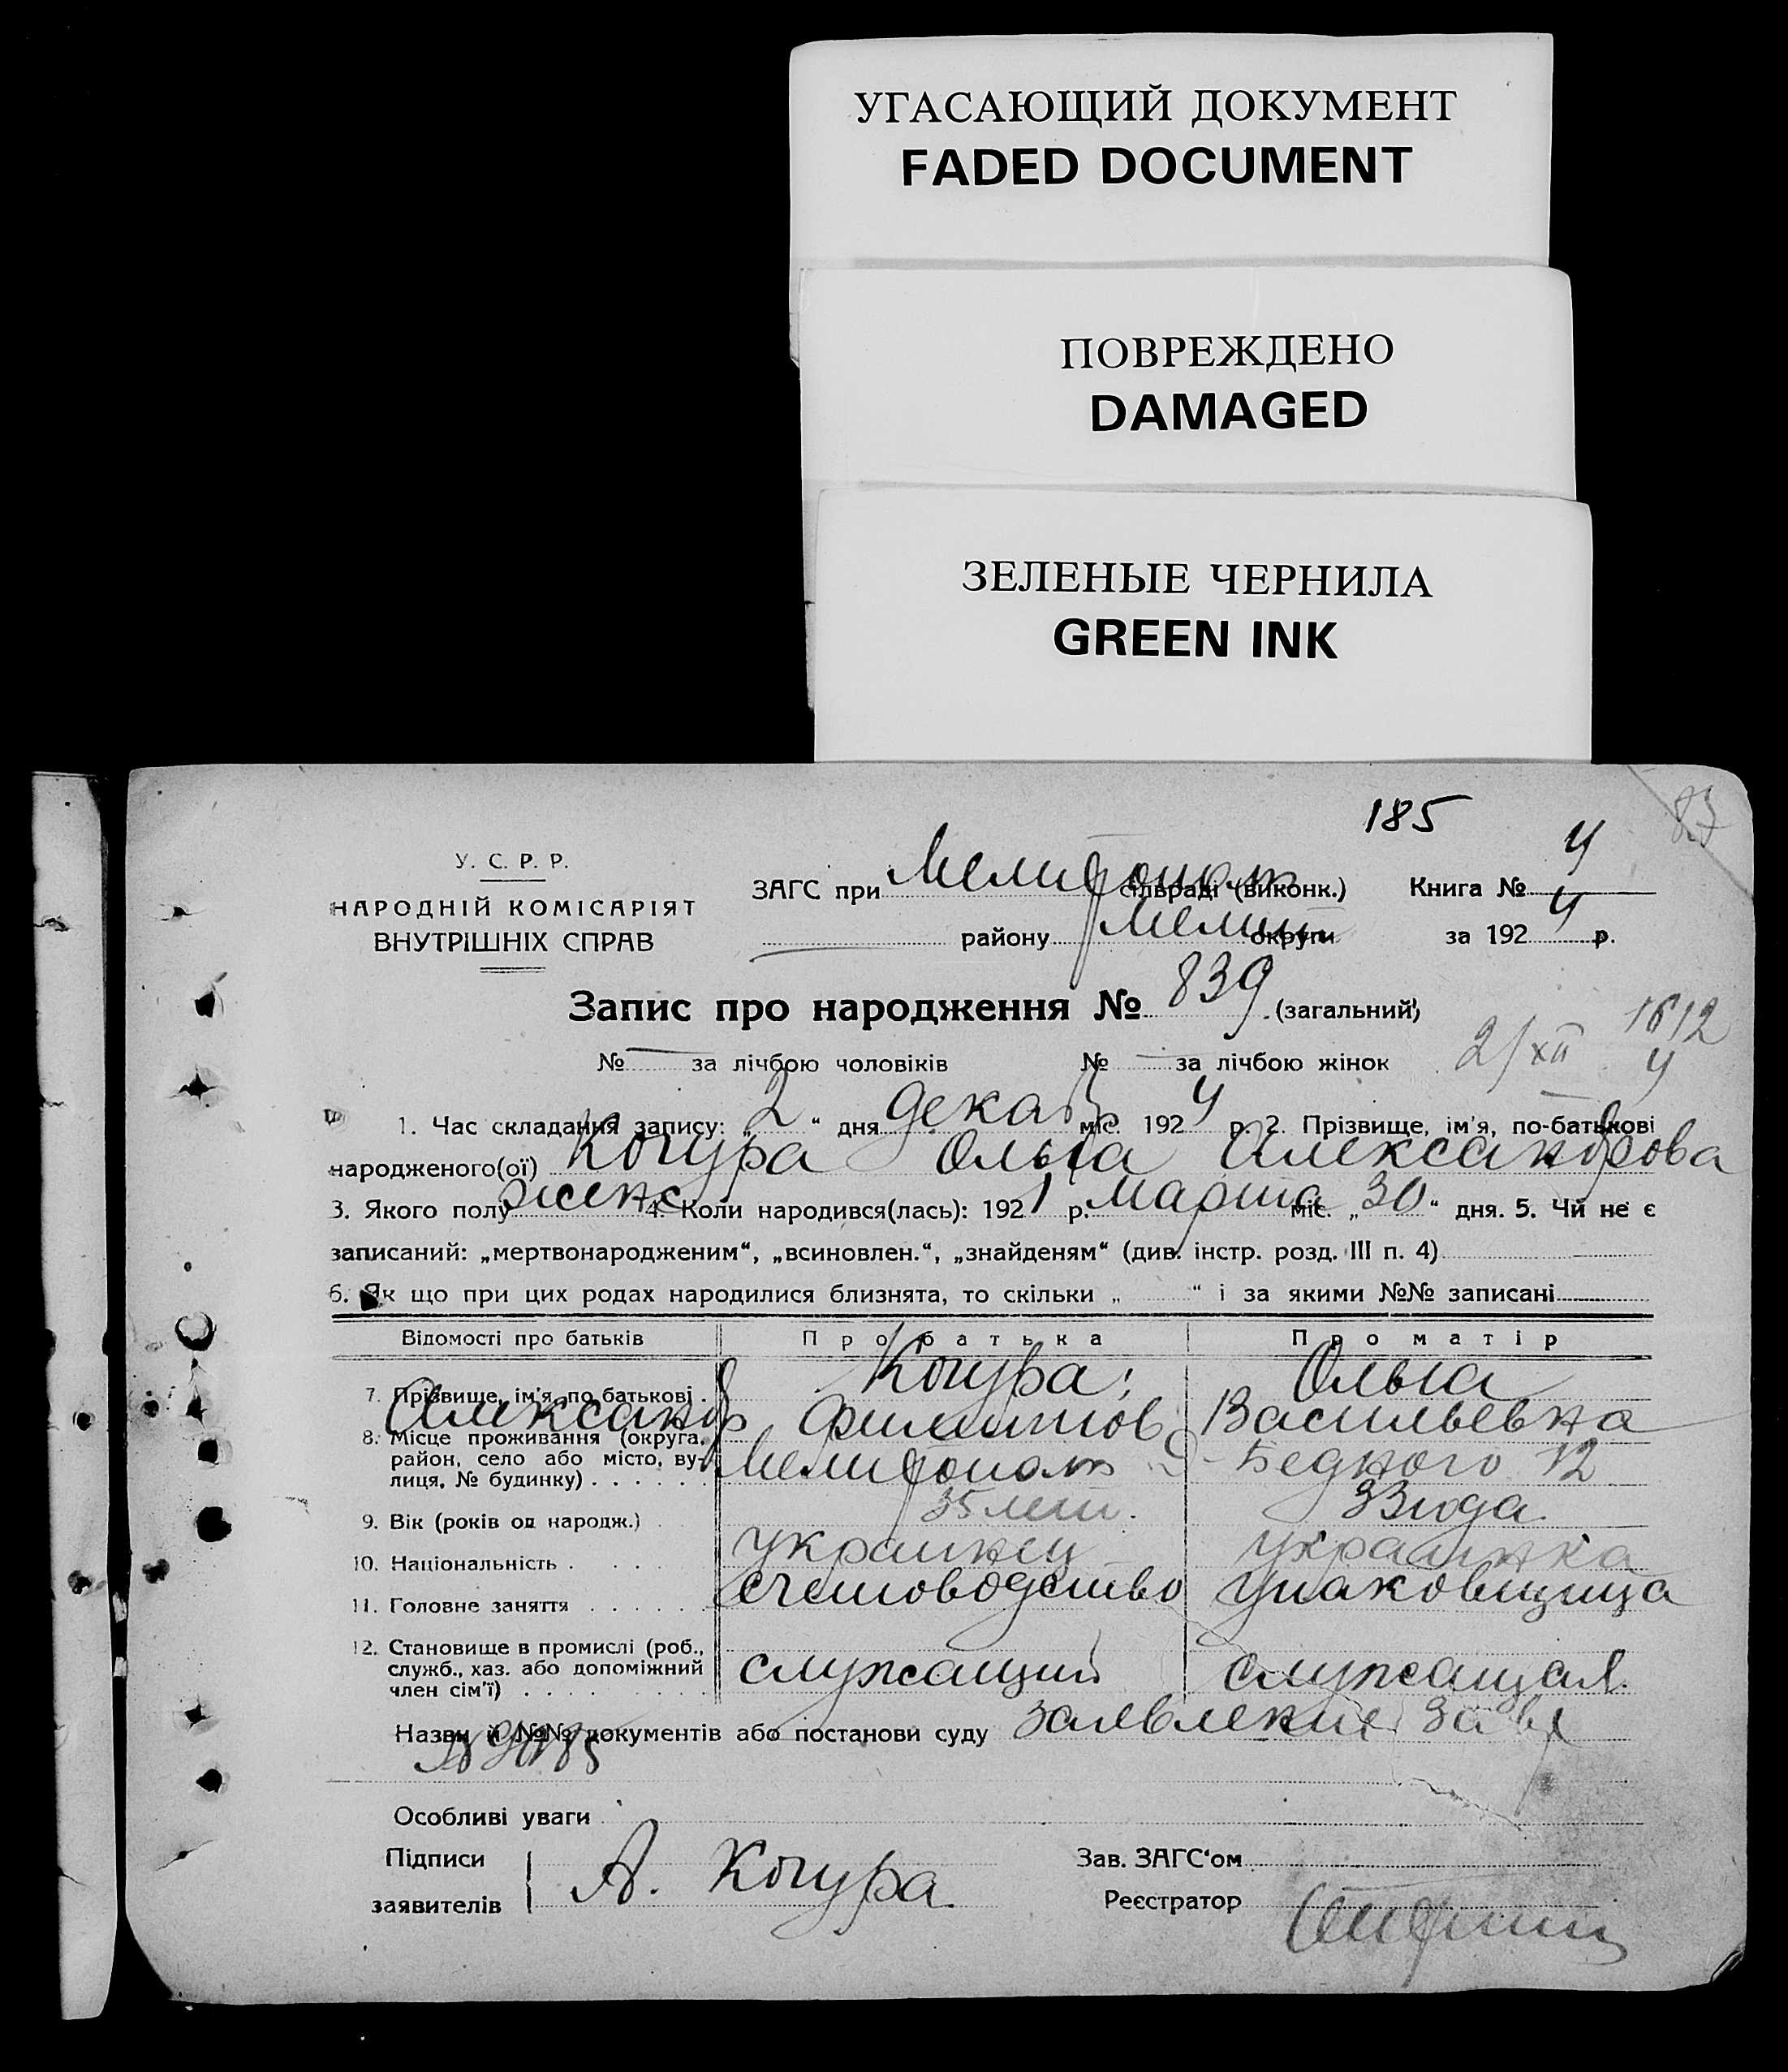 УГАСАЮЩИЙ ДОКУМЕНТ
FADED DOCUMENT
ПОВРЕЖДЕНО
DAMAGED
ЗЕЛЕНЫЕ ЧЕРНИЛА
GREEN INK
185
У. С. Р. Р.
НАРОДНІЙ КОМІСАРІЯТ
ВНУТРІШНІХ СПРАВ
ЗАГС при Мелитополь сільраді (виконк.) Книга № 4
району Мелит округи за 1924 р.
Запис про народження № 839 (загальний)
№ за лічбою чоловіків № за лічбою жінок 2/XII
1. Час складання запису: „ 2 “ дня декаб міс. 1924 р. 2. Прізвище, ім'я, по-батькові
народженого(ої) Когура Ольга Александрова
3. Якого полу женс 4. Коли народився(лась): 1921 р. марта міс. „ 30 “ дня. 5. Чи не є
записаний: „мертвонародженим“, „всиновлен.“, „знайденям“ (див. інстр. розд. III п. 4)
6. Як що при цих родах народилися близнята, то скільки „ “ і за якими №№ записані
Відомості про батьків Про батька Про матір
7. Прізвище, ім'я, по батькові Когура, Александр Филиппов Ольга Васильевна
8. Місце проживання (округа, район, село або місто, вулиця, № будинку) Мелитополь Бедного 12
9. Вік (років од народж.) 35 лет. 33 года
10. Національність украинец украинка
11. Головне заняття счетоводство упаковщица
12. Становище в промислі (роб., служб., хаз. або допоміжний член сім'ї) служащий служащая
Назви й №№ документів або постанови суду заявление за
Особливі уваги
Підписи
заявителів А. Когура
Зав. ЗАГС'ом
Реєстратор